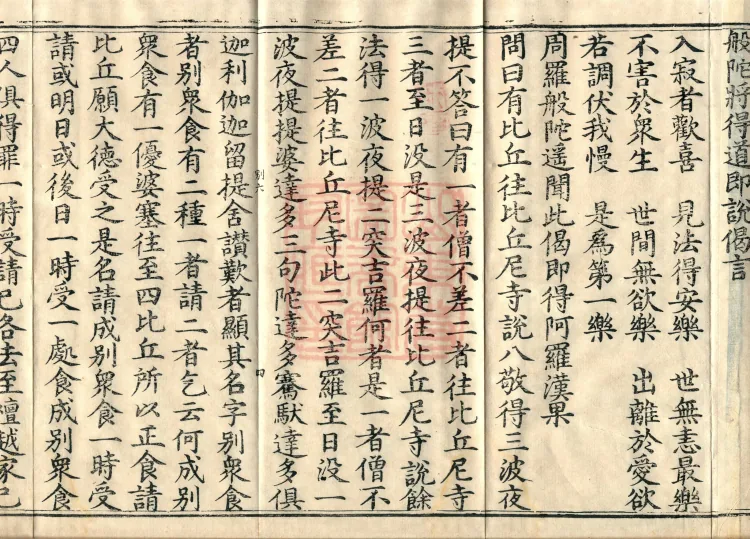 般陀將得道即說偈言
入寂者歡喜 見法得安樂 世無恚最樂
不害於衆生 世間無欲樂 出離於愛欲
若調伏我慢 是爲第一樂
周羅般陀遥聞此偈即得阿羅漢果
問曰有比丘往比丘尼寺說八敬得三波夜
提不答曰有一者僧不差二者往比丘尼寺
三者至日没是三波夜提往比丘尼寺說餘
法得一波夜提二突吉羅何者是一者僧不
差二者往比丘尼寺此二突吉羅至日没一
波夜提提婆達多三句陀達多騫馱達多俱
迦利伽迦留提舍讃歎者顯其名字別衆食
者別衆食有二種一者請二者乞云何成別
衆食有一優婆塞往至四比丘所以正食請
比丘願大德受之是名請成別衆食一時受
請或明日或後日一時受一處食成別衆食
四人俱得罪一時受請已各去至檀越家已